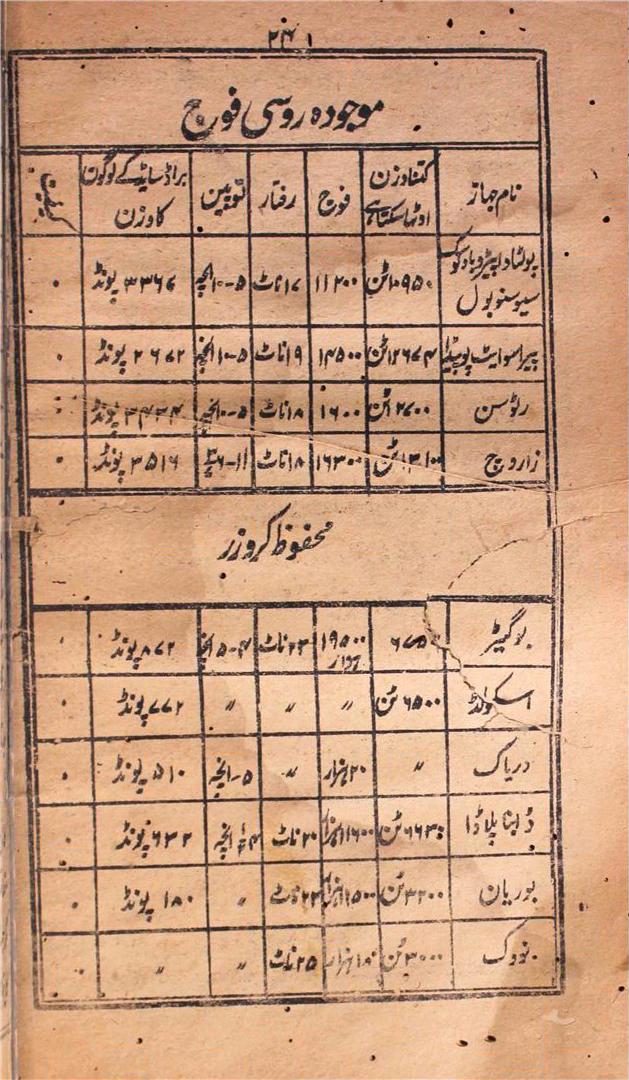 ۲۴۱
موجودہ روسی فوج
نام جہاز | کتنا وزن اوٹھا سکتا ہے | فوج | رفتار | توپین | براڈ سایڈ کے لوگون کا وزن
پولٹاوا پیٹروپاولوسک سیوسٹوپول | ۱۰۹۵۰ ٹن | ۱۱۲۰۰ | ۱۷ ناٹ | ۵-۱۰ انچہ | ۳۳۶۷ پونڈ | ۰
۱۲۶۷۴ ٹن | ۱۴۵۰۰ | ۱۹ ناٹ | ۵-۱۰ انچہ | ۲۶۷۲ پونڈ | ۰
رٹوسن | ۱۲۷۰۰ ٹن | ۱۶۰۰ | ۱۸ ناٹ | ۵-۱۰ انچہ | ۳۴۳۴ پونڈ
زارویچ | ۱۳۱۰۰ ٹن | ۱۶۳۰۰ | ۱۸ ناٹ | ۳۵۱۶ پونڈ | ۰
محفوظ کروزر
بوگیٹر | ۶۷۵۰ | ۱۹۵۰۰ | ۲۳ ناٹ | ۴-۵ انچہ | ۸۷۲ پونڈ | ۰
اسکولڈ | ۶۵۰۰ ٹن | 〃 | 〃 | 〃 | ۷۷۲ پونڈ | ۰
دریاک | 〃 | ۲۰ ہزار | 〃 | ۵-انچہ | ۵۱۰ پونڈ | ۰
ڈاینا پلاڈا | ۶۶۳۰ ٹن | ۱۱۶۰۰ | ۲۰ ناٹ | انچہ | ۶۳۲ پونڈ | ۰
بوریان | ۳۲۰۰ ٹن | ۲۲ ناٹ | 〃 | ۱۸۰ پونڈ | ۰
نووک | ۳۰۰۰ ٹن | ۱۸ ہزار | ۲۵ ناٹ | 〃 | 〃 | ۰